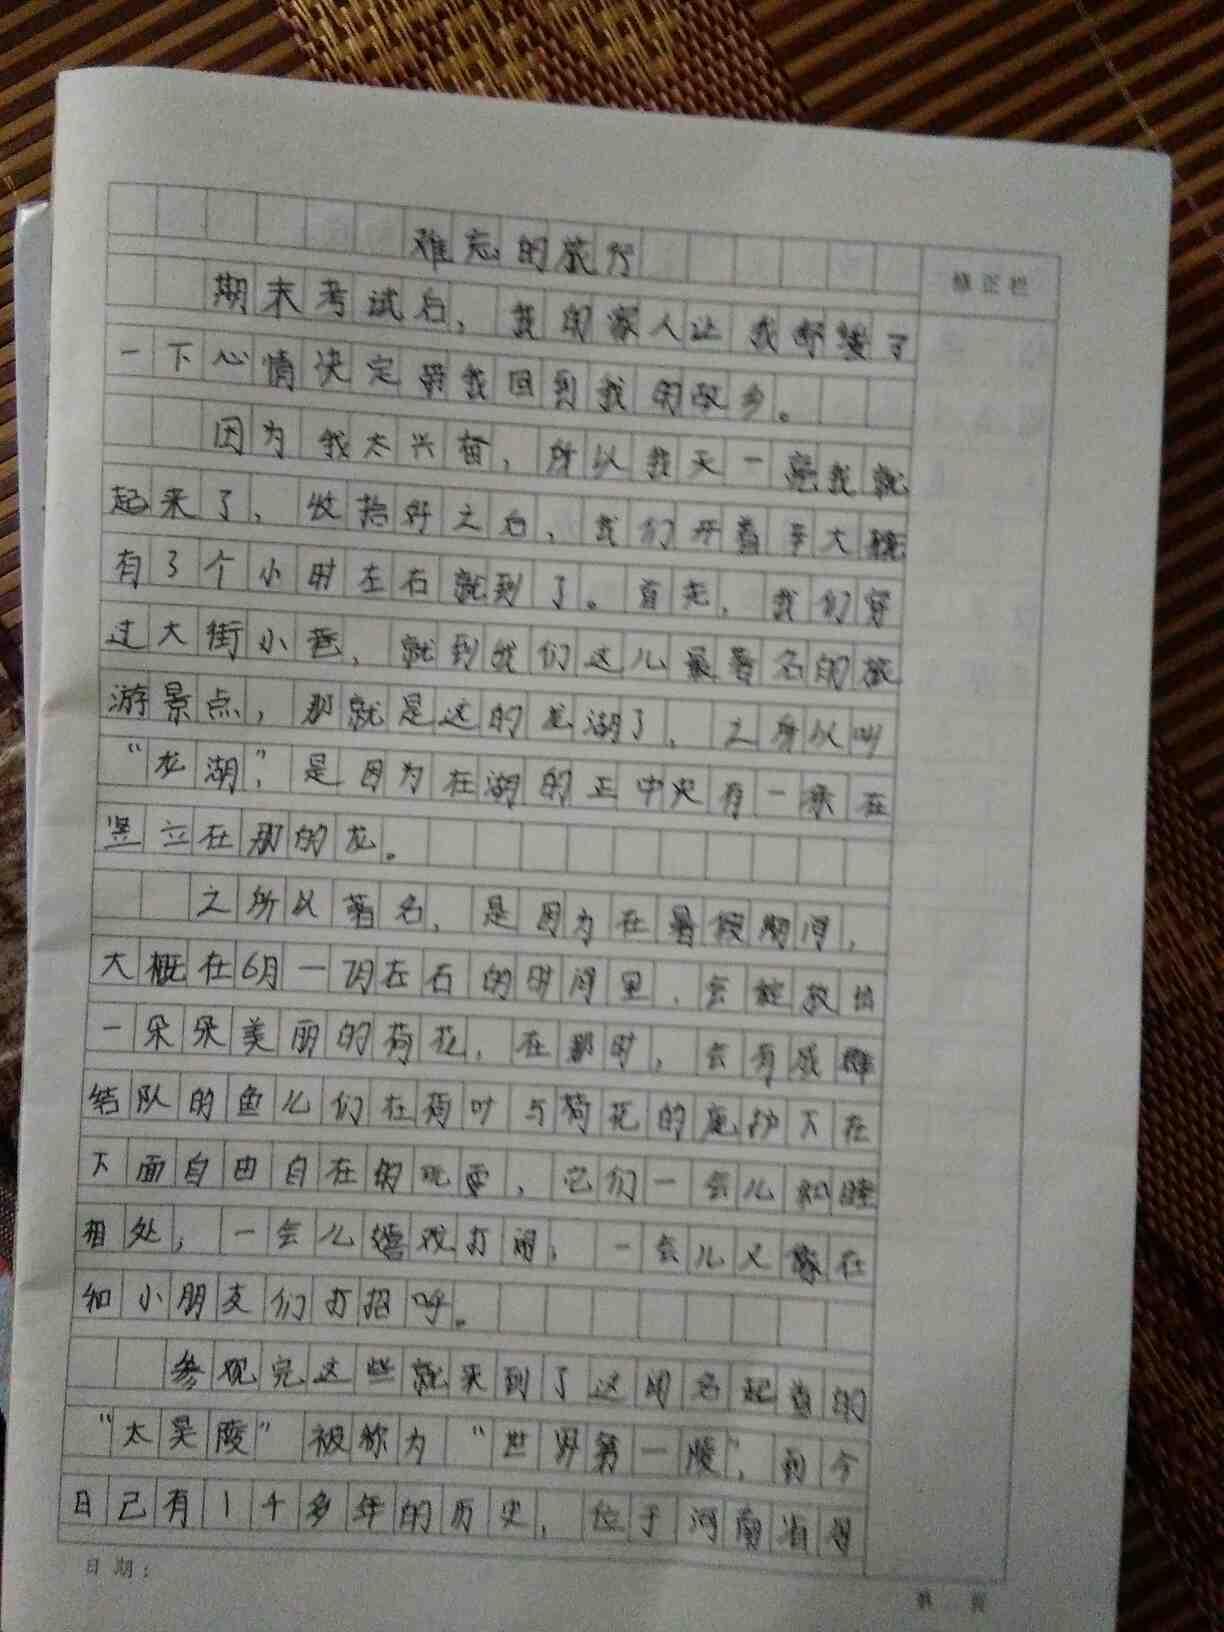 难忘的旅行
修正栏
期末考试后，我的家人让我舒缓了
一下心情决定带我回到我的故乡。
因为我太兴奋，所以我天一亮我就
起来了，收拾好之后，我们开着车大概
有3个小时左右就到了。首先，我们穿
过大街小巷，就到我们这儿最著名的旅
游景点，那就是这的龙湖了，之所以叫
“龙湖”，是因为在湖的正中央有一条在
竖立在那的龙。
之所以著名，是因为在暑假期间，
大概在6月一7月左右的时间里，会绽放出
一朵朵美丽的荷花，在那时，会有成群
结队的鱼儿们在荷叶与荷花的庇护下在
下面自由自在的玩耍，它们一会儿和睦
相处，一会儿嬉戏打闹，一会儿又像在
和小朋友们打招呼。
参观完这些就来到了这的名起首的
“太昊陵”被称为“世界第一陵”，到今
日已有1千多年的历史，位于河南省
日期：
第 页